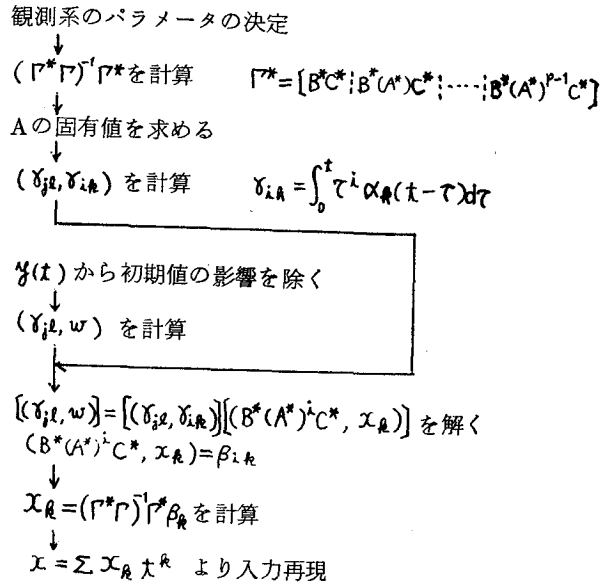 観測系のパラメータの決定
(Γ*Γ)⁻¹Γ*を計算 Γ*=[B*C*⋮B*(A*)C*⋮‐‐‐‐⋮B*(A*)^{p-1}C*]
Aの固有値を求める
(γ_{jl}, γ_{ik}) を計算 γ_{ik}=∫₀ᵗτⁱα_k(t-τ)dτ
y(t)から初期値の影響を除く
(γ_{jl}, w) を計算
[(γ_{jl}, w)]=[(γ_{jl}, γ_{ik})][(B*(A*)ⁱC*, x_k)] を解く
(B*(A*)ⁱC*, x_k)=β_{ik}
x_k=(Γ*Γ)⁻¹Γ*β_kを計算
x=Σx_k t^k より入力再現